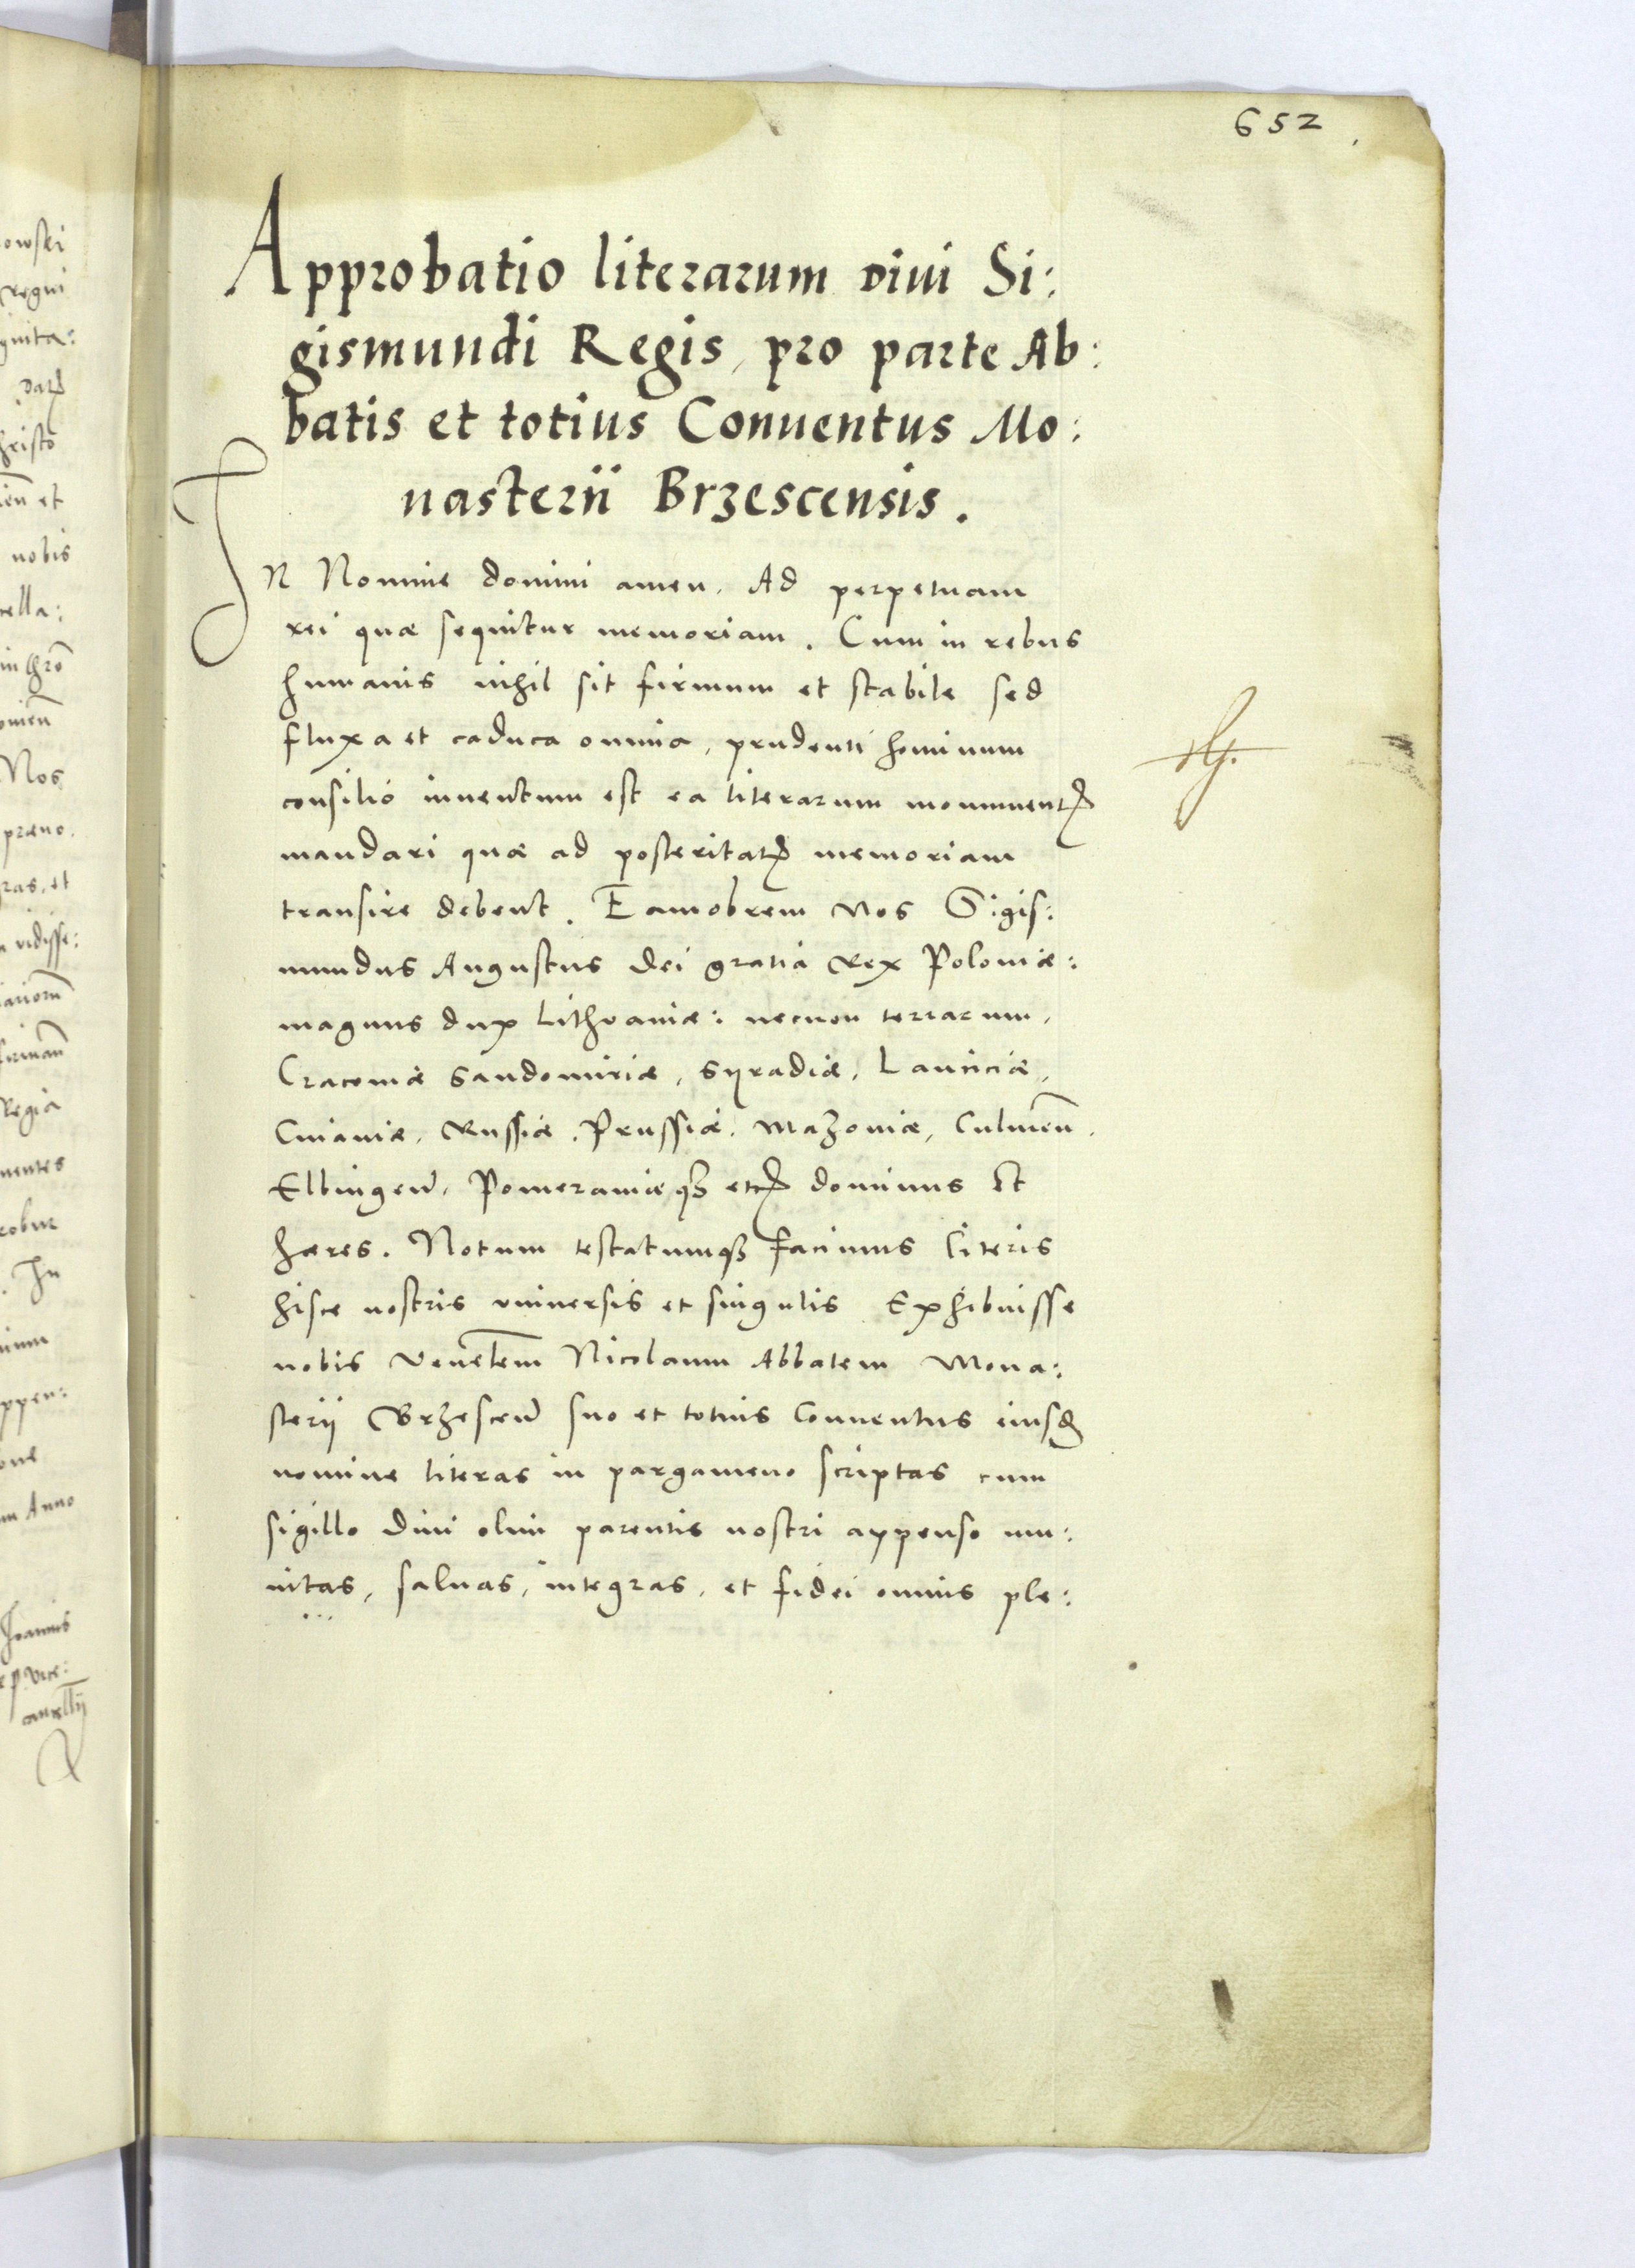 652
Approbatio literarum diui Si:
gismundi Regis, pro parte Ab:
batis et totius Conuentus Mo:
nasterii Brzescensis.
IN Nomine domini amen. Ad perpetuam
rei quæ sequitur memoriam. Cum in rebus
humanis nihil sit firmum et stabile sed
fluxa et caduca omnia, prudenti hominum
consilio inuentum est ea literarum monumentꝭ
mandari quæ ad posteritatꝭ memoriam
transire debent. Eamobrem Nos Sigis:
mundus Augustus dei gratia Rex Poloniæ:
magnus dux Lithvaniæ: necnon terrarum,
Cracoviæ Sandomiriæ, Syradiæ, Lanciciæ,
Cuiaviæ, Russiæ, Prussiæ, Mazoviæ, Culmeñ,
Elbingeñ, Pomeraniæqꝫ etcꝭ dominus Et
hæres. Notum testatumqꝫ facimus literis
hisce nostris vniuersis et singulis Exhibuisse
nobis Veneլ̄em Nicolaum Abbatem Mona:
sterij Brzesceñ suo et totius Conuentus eiusdꝭ
nomine literas in pargameno scriptas cum
sigillo Diui olim parentis nostri appenso mu:
nitas, saluas, integras, et fidei omnis ple: